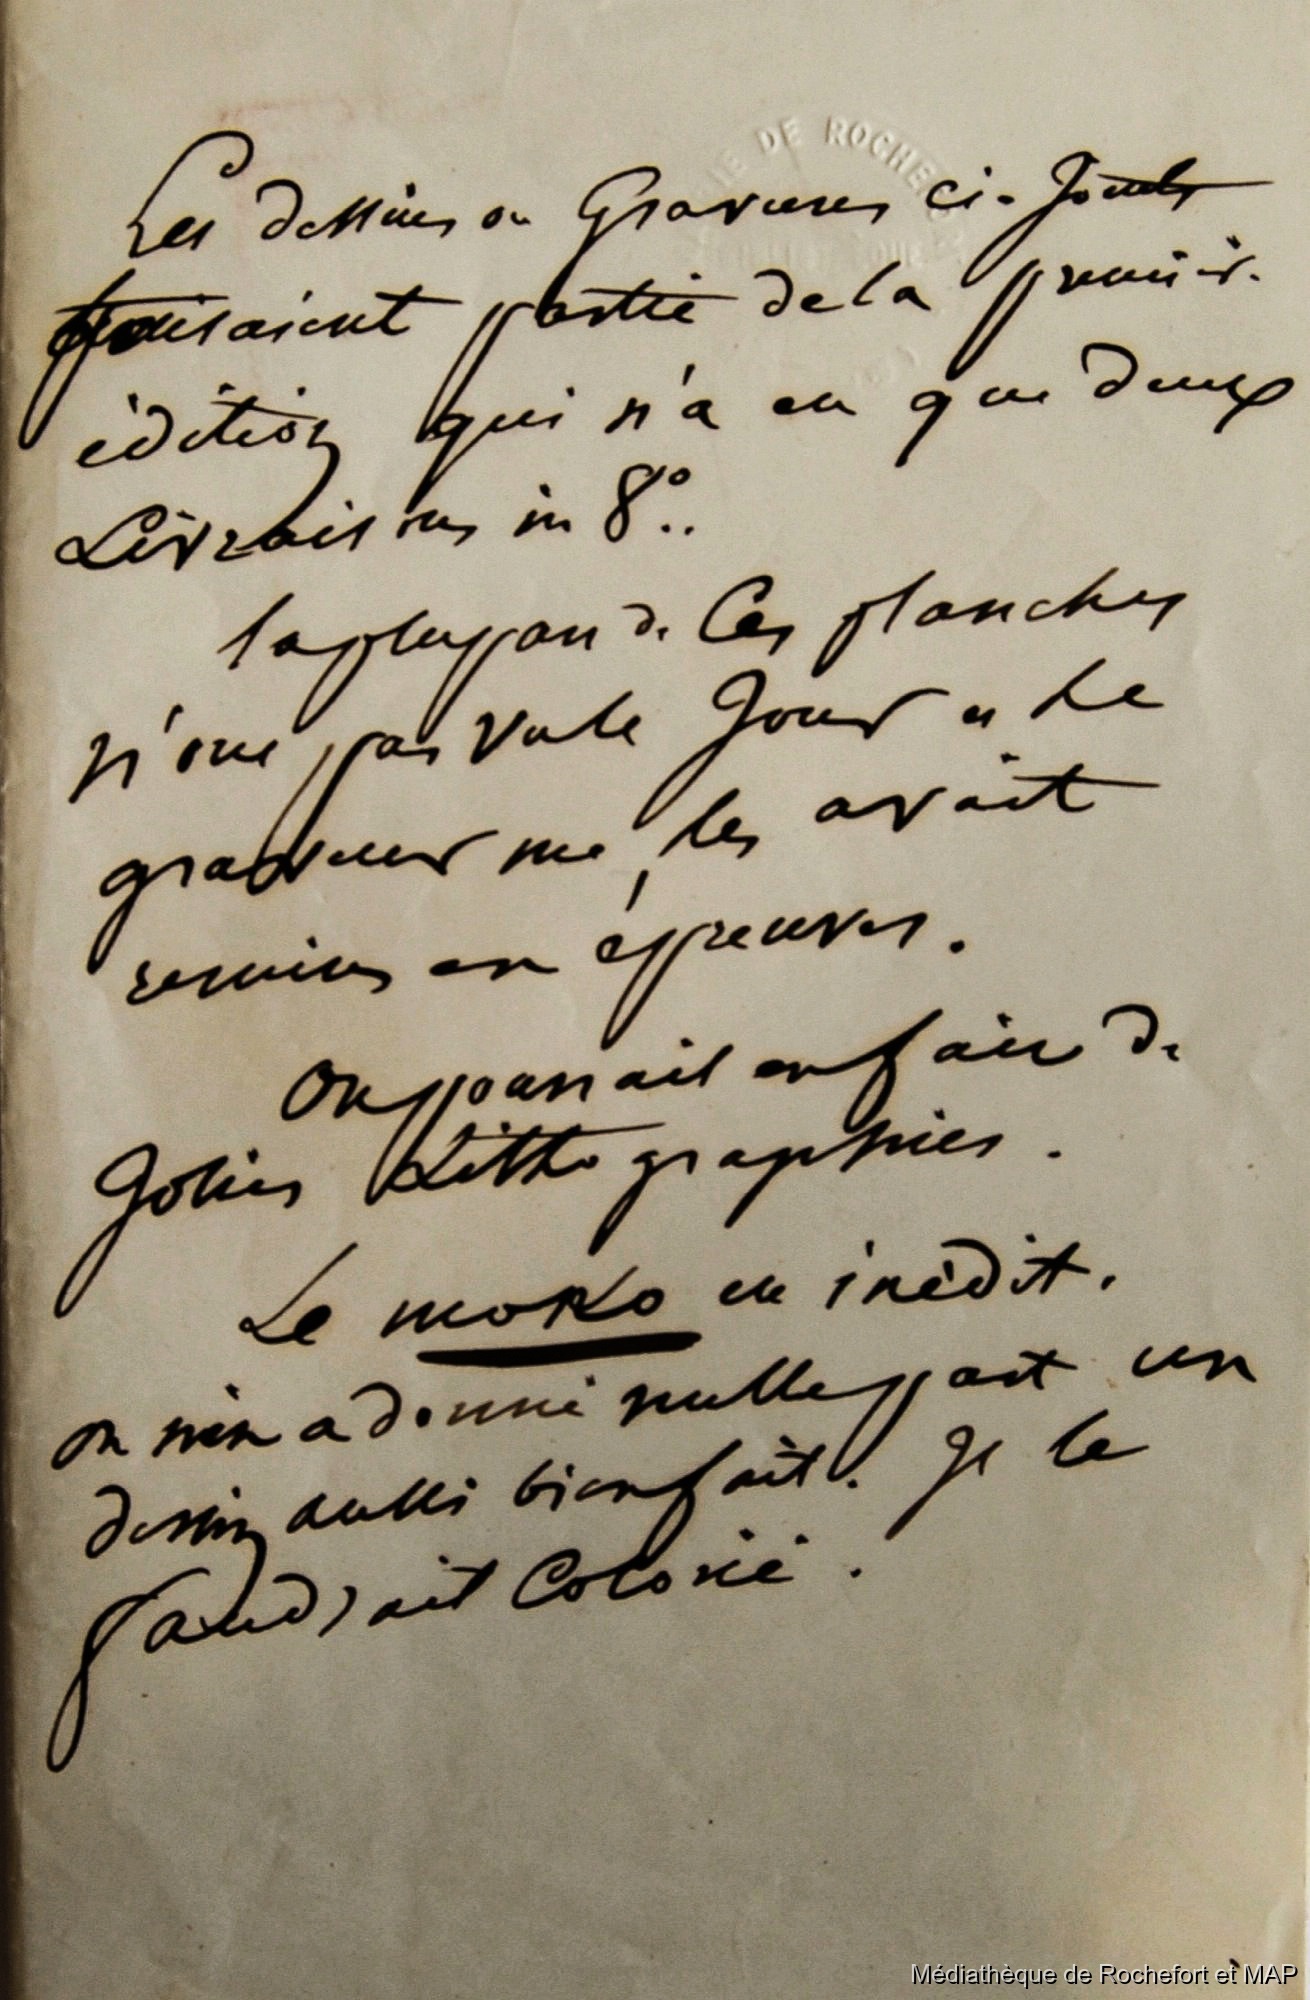 DE ROCHE
Les dessins ou Gravures ci-Joints
faisaient partie de la premièr.
édition qui n'a eu que deux
Livraisons in 8°..
la plupart de Ces planches
n'ont pas vu le Jour et le
graveur me les avait
remises en épreuves.
On pourrait en faire de
Jolies Lithographies.
Le moko est inédit.
on n'en a donné nulle part un
dessin aussi bien fait. Je le
faudrait Colorié.
Médiathèque de Rochefort et MAP